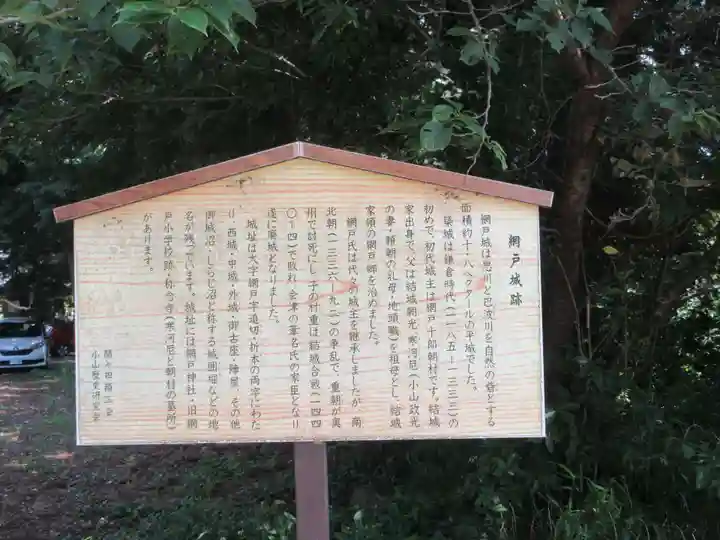 網戸城跡
網戸城は思川と巴波川を自然の砦とする
面積約十・八ヘクタールの平城でした。
築城は鎌倉時代(一一八五ー一三三三)の
初めで、初代城主は網戸十郎朝村です。結城
家出身で、父は結城朝光、寒河尼(小山政光
の妻・頼朝の乳母・地頭職)を祖母とし、結城
家領の網戸郷を治めました。
網戸氏は代々の城主を継承しましたが、南
北朝(一三三六ー九二)の争乱で、重朝が奥
州で討死にし、子の村重は結城合戦(一四四
〇ー四一)で敗れ、会津の葦名氏の家臣となり
遂に廃城となりました。
城址は大字網戸字道切・祈本の両字にわた
り、西城・中城・外城・御古座・陣屋、その他
御城沼・しらじ沼と称する城囲堀などの地
名が残っています。城址には網戸神社・旧網
戸小学校跡・称念寺(寒河尼と朝村の墓所)
があります。
間々田商工会
小山歴史研究会